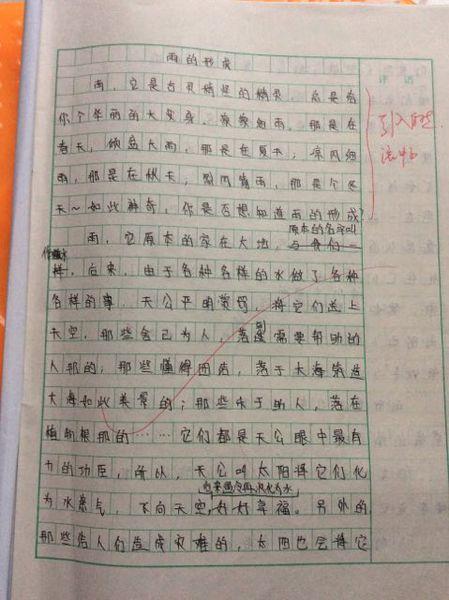 雨的形成
雨，它是古灵精怪的精灵，总是喜
你个年雨的大变身，蒙蒙细雨，那是在
春天，倾盆大雨，那是在夏天，凉风细
雨，那是在秋天，寒风冒雨，那是个冬
天～如此神奇，你是否想知道雨的形成
原本的名字叫
雨，它原本的家在大地，
作做水
样，后来，由于各种各样的水做了各种
各样的事，天公平明赏罚，将它们送上
天空，那些舍己为人，落到需要帮助的
人那的；那些懂得团结，落于大海营造
大海如此美景的；那些乐于助人，落在
植物根那的……它们都是天公眼中最有
力的功臣，所以，天公叫太阳将它们化
后来遇冷再次化为水
为水蒸气，飞向天空，好好享福。另外的
那些信人们造成灾难的，太阳也会将它
评语
引入自然
流畅